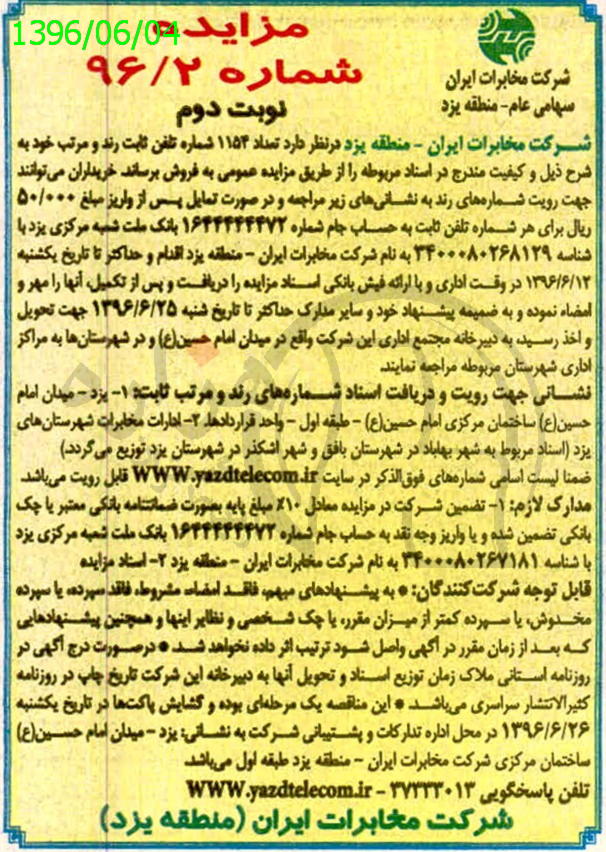 1396/06/04
مزایده
شماره ۹۶/۲
نوبت دوم
شرکت مخابرات ایران
سهامی عام- منطقه یزد
شرکت مخابرات ایران - منطقه یزد درنظر دارد تعداد ۱۱۵۴ شماره تلفن ثابت رند و مرتب خود به
شرح ذیل و کیفیت مندرج در اسناد مربوطه را از طریق مزایده عمومی به فروش برساند. خریداران می‌توانند
جهت رویت شماره‌های رند به نشانی‌های زیر مراجعه و در صورت تمایل پس از واریز مبلغ ۵۰/۰۰۰
ریال برای هر شماره تلفن ثابت به حساب جام شماره ۱۶۴۴۴۴۴۴۷۲ بانک ملت شعبه مرکزی یزد با
شناسه ۳۴۰۰۰۸۰۲۶۸۱۲۹ به نام شرکت مخابرات ایران - منطقه یزد اقدام و حداکثر تا تاریخ یکشنبه
۱۳۹۶/۶/۱۲ در وقت اداری و با ارائه فیش بانکی اسناد مزایده را دریافت و پس از تکمیل، آنها را مهر و
امضاء نموده و به ضمیمه پیشنهاد خود و سایر مدارک حداکثر تا تاریخ شنبه ۱۳۹۶/۶/۲۵ جهت تحویل
و اخذ رسید، به دبیرخانه مجتمع اداری این شرکت واقع در میدان امام حسین(ع) و در شهرستان‌ها به مراکز
اداری شهرستان مربوطه مراجعه نمایند.
نشانی جهت رویت و دریافت اسناد شماره‌های رند و مرتب ثابت: ۱- یزد - میدان امام
حسین(ع) ساختمان مرکزی امام حسین(ع) - طبقه اول - واحد قراردادها. ۲- ادارات مخابرات شهرستان‌های
یزد (اسناد مربوط به شهر بهاباد در شهرستان بافق و شهر اشکذر در شهرستان یزد توزیع می‌گردد.)
ضمنا لیست اسامی شماره‌های فوق‌الذکر در سایت WWW.yazdtelecom.ir قابل رویت می‌باشد.
مدارک لازم: ۱- تضمین شرکت در مزایده معادل ۱۰٪ مبلغ پایه بصورت ضمانتنامه بانکی معتبر یا چک
بانکی تضمین شده و یا واریز وجه نقد به حساب جام شماره ۱۶۴۴۴۴۴۴۷۲ بانک ملت شعبه مرکزی یزد
با شناسه ۳۴۰۰۰۸۰۲۶۷۱۸۱ به نام شرکت مخابرات ایران - منطقه یزد ۲- اسناد مزایده
قابل توجه شرکت‌کنندگان: * به پیشنهادهای مبهم، فاقد امضاء، مشروط، فاقد سپرده، یا سپرده
مخدوش، یا سپرده کمتر از میزان مقرر، یا چک شخصی و نظایر اینها و همچنین پیشنهادهایی
که بعد از زمان مقرر در آگهی واصل شود ترتیب اثر داده نخواهد شد. * درصورت درج آگهی در
روزنامه استانی ملاک زمان توزیع اسناد و تحویل آنها به دبیرخانه این شرکت تاریخ چاپ در روزنامه
کثیرالانتشار سراسری می‌باشد. * این مناقصه یک مرحله‌ای بوده و گشایش پاکت‌ها در تاریخ یکشنبه
۱۳۹۶/۶/۲۶ در محل اداره تدارکات و پشتیبانی شرکت به نشانی: یزد - میدان امام حسین(ع)
ساختمان مرکزی شرکت مخابرات ایران - منطقه یزد طبقه اول می‌باشد.
تلفن پاسخگویی ۳۷۲۳۳۰۱۳ - WWW.yazdtelecom.ir
شرکت مخابرات ایران (منطقه یزد)